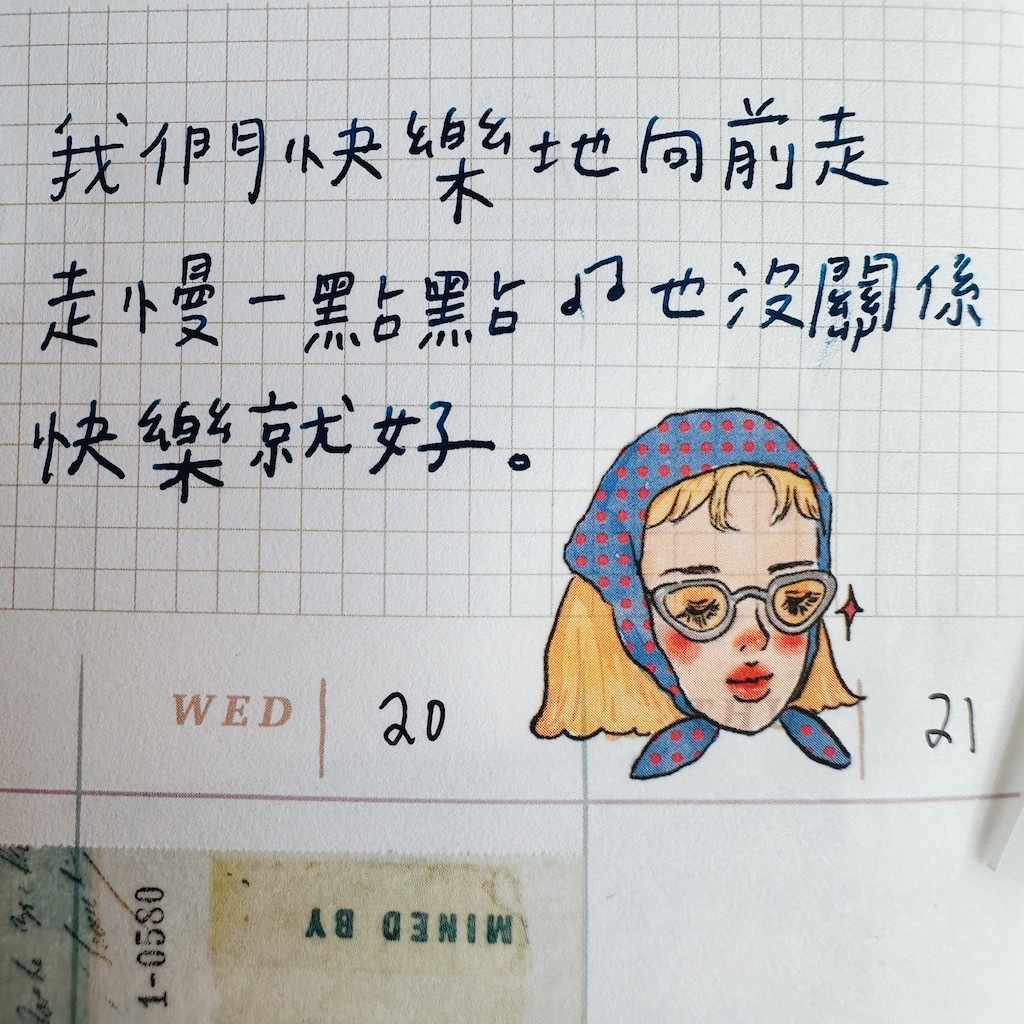 我們快樂地向前走
走慢一點點♫也沒關係
快樂就好。
WED 20 21
1-0580
MINED BY